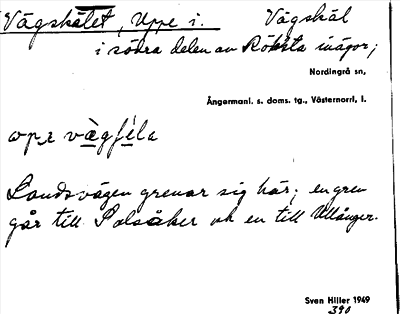 Vägskälet, Uppe i. Vägskäl
i södra delen av Röksta inägor;
Nordingrå sn,
Ångermanl. s. doms. tg., Västernorrl. l.
Landsvägen grenar sig här; en gren
går till Salsåker och en till Ullånger.
Sven Hiller 1949
390